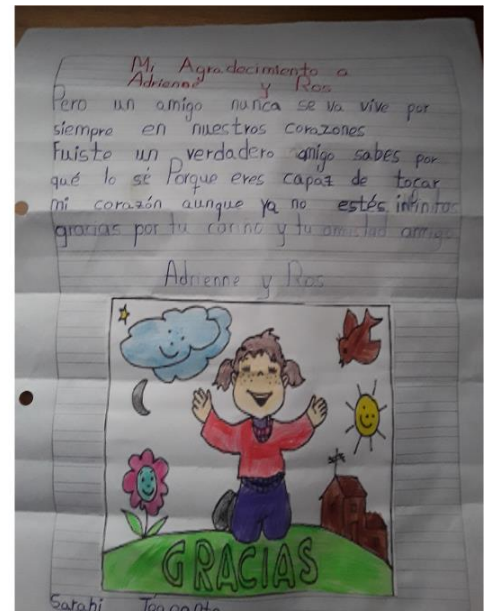 Mi Agradecimiento a
Adrienne y Ros
Pero un amigo nunca se va vive por
siempre en nuestros corazones
Fuiste un verdadero amigo sabes por
qué lo sé Porque eres capaz de tocar
mi corazón aunque ya no estés infinitas
gracias por tu cariño y tu amistad amigo
Adrienne y Ros
GRACIAS
Sarahi